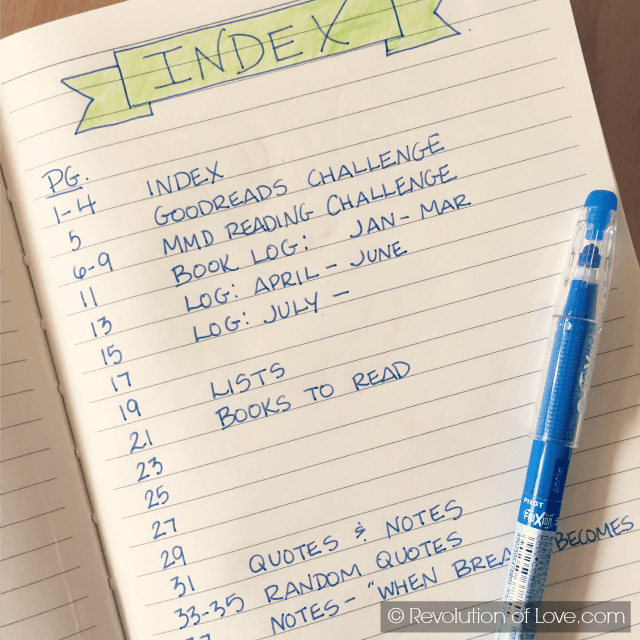 INDEX
PG.
1-4 INDEX
5 GOODREADS CHALLENGE
6-9 MMD READING CHALLENGE
11 BOOK LOG: JAN - MAR
13 LOG: APRIL - JUNE
15 LOG: JULY -
17
19 LISTS
21 BOOKS TO READ
23
25
27
29
31 QUOTES & NOTES
33-35 RANDOM QUOTES
NOTES - "WHEN BREA BECOMES
PILOT
FriXion
© Revolution of Love.com